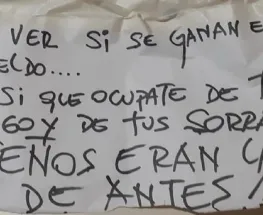 VER SI SE GANAN E
ELDO....
SI QUE OCUPATE DE T
GO Y DE TUS SORRA
ENOS ERAN
DE ANTES!